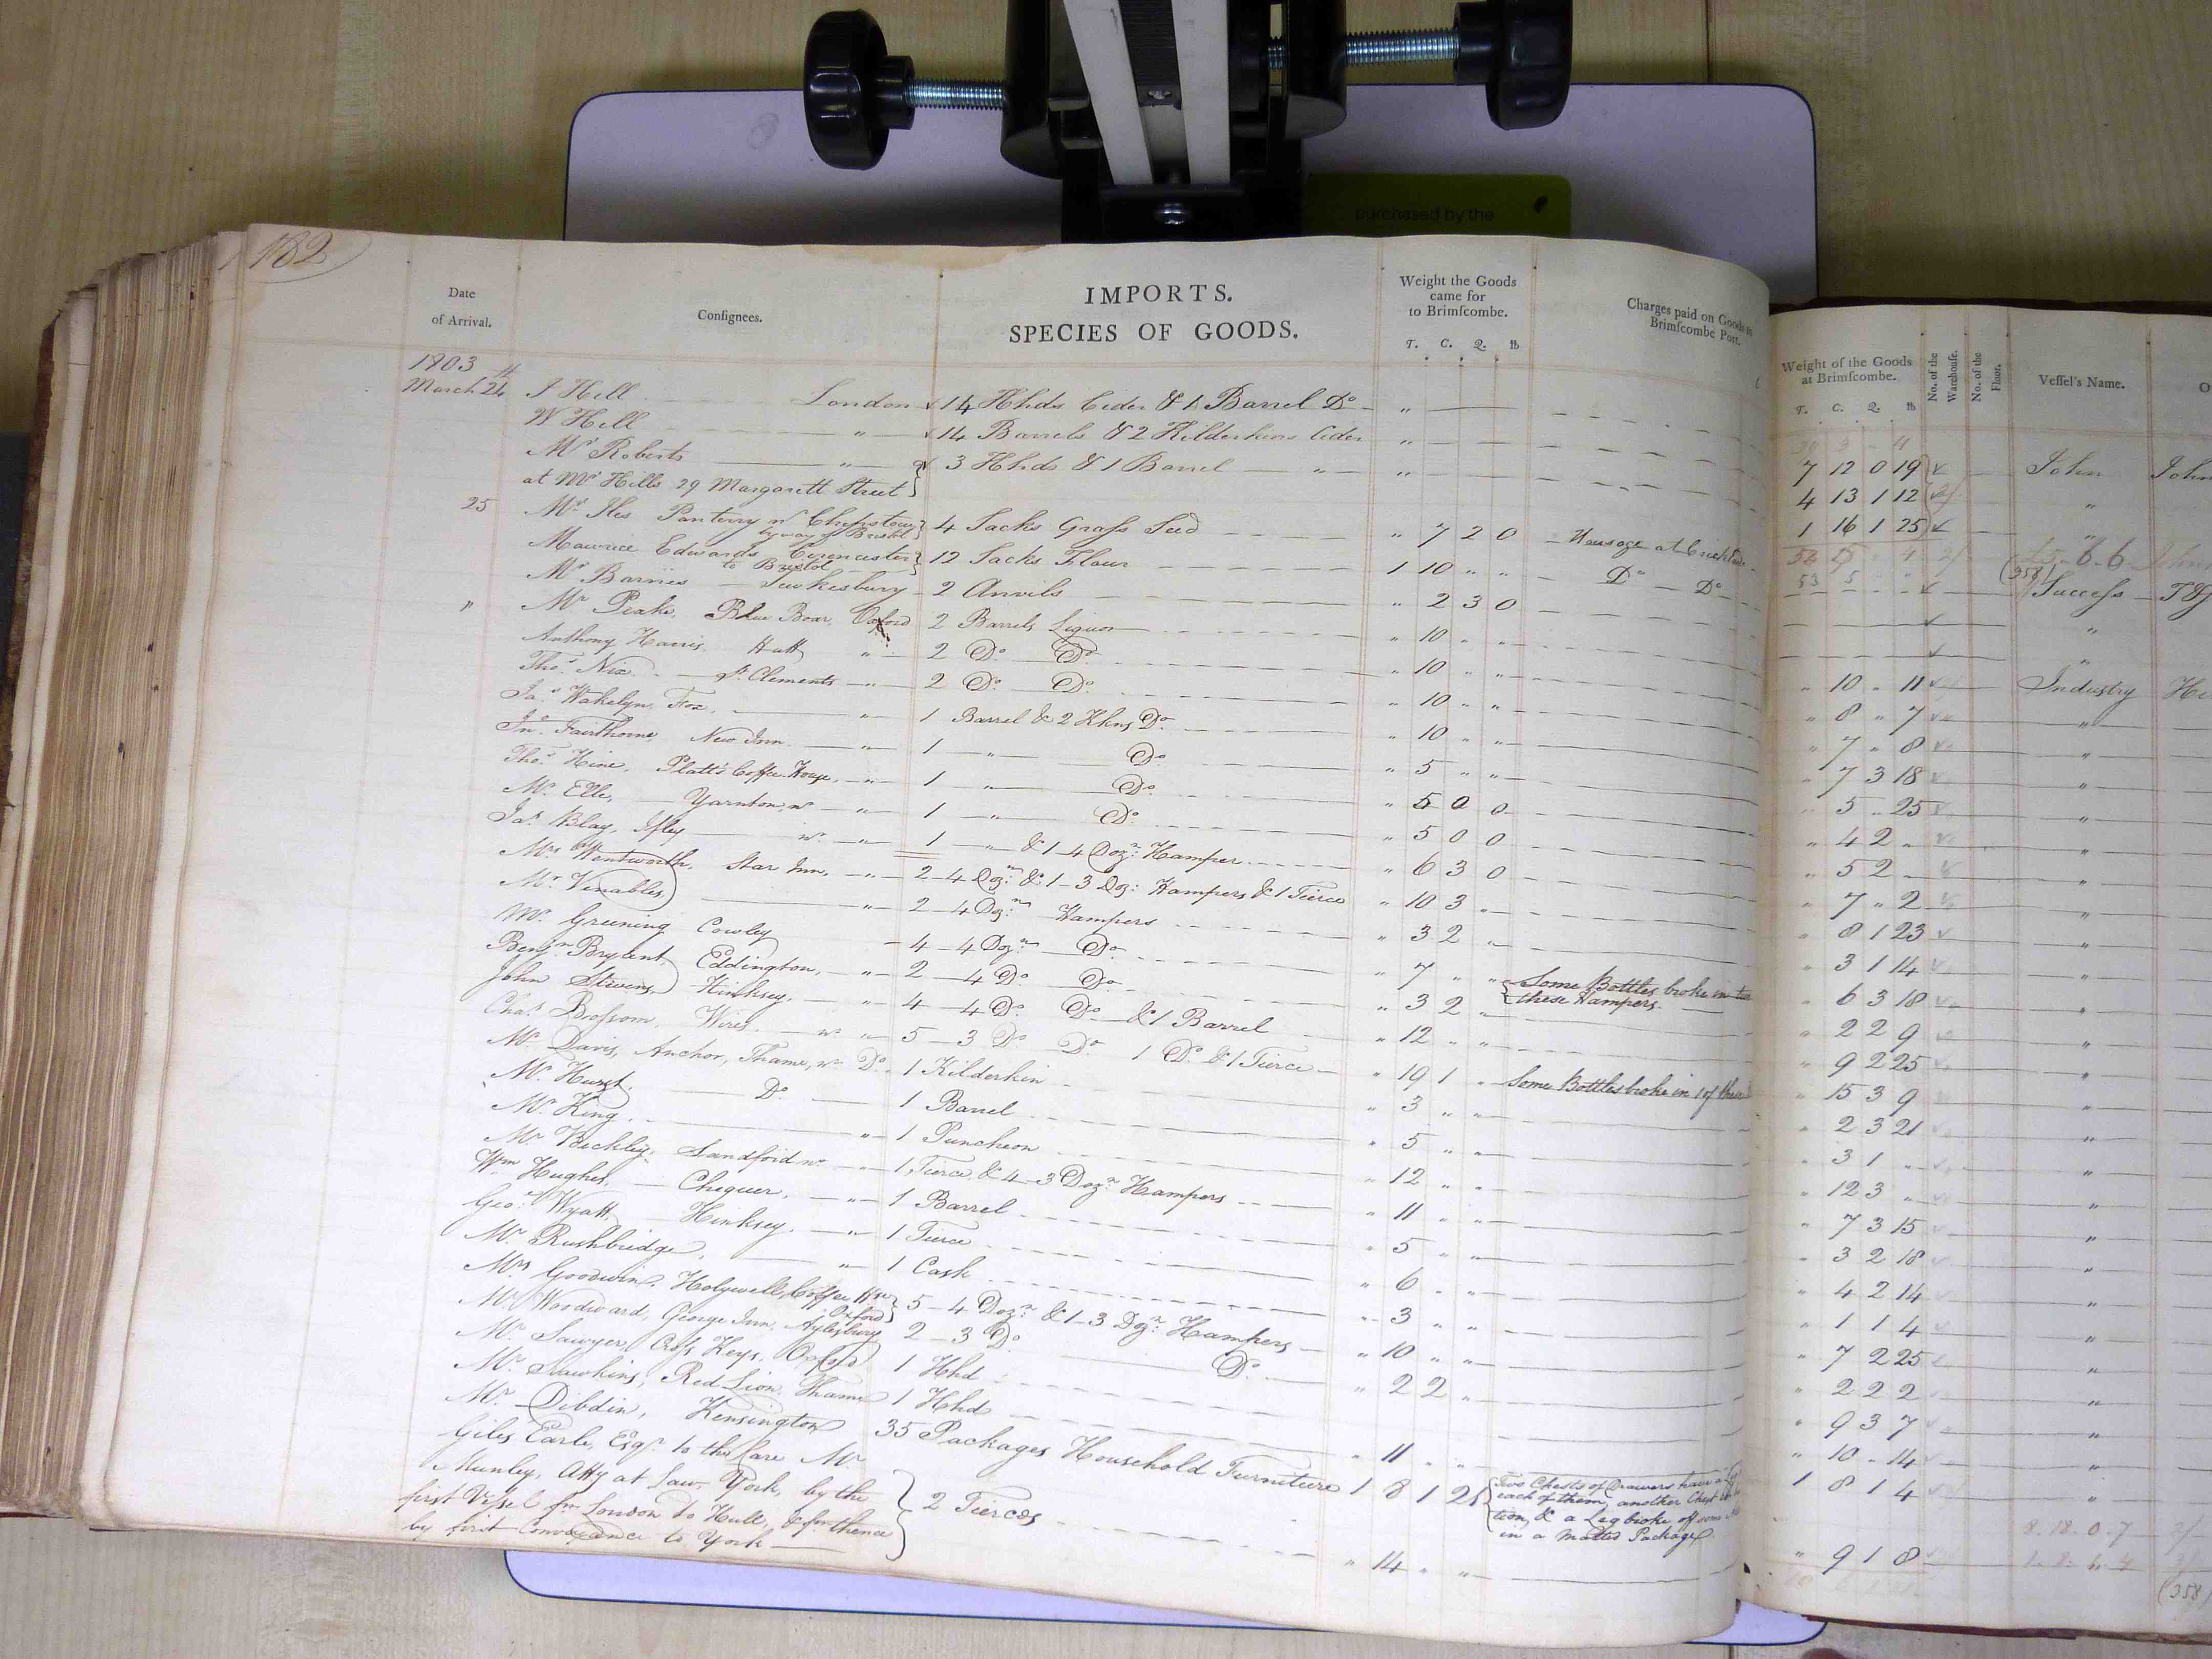 purchased by the
182
Date
of Arrival.
Consignees.
IMPORTS.
SPECIES OF GOODS.
Weight the Goods
came for
to Brimscombe.
T. C. Q. lb
Charges paid on Goods to
Brimscombe Port.
1803
March 24th J Hill London 14 Hhds Cider & 1 Barrel Do "
W Hill " 14 Barrels & 2 Kilderkins Cider "
Mr Roberts " 3 Hhds & 1 Barrel " "
at Mr Hills 29 Margarett Street
25 Mr Iles Panterry nr Chepstow 4 Sacks Grass Seed " 7 2 0
by way of Bristol
Maurice Edwards Cirencester 12 Sacks Flour 1 10 " " Do Do
to Bristol
Mr Barnes Tewkesbury 2 Anvils " 2 3 0
" Mr Peake, Blue Boar, Oxford 2 Barrels Liquor " 10 " "
Anthony Harris, " 2 Do Do " 10 " "
Thos Nix St Clements " 2 Do Do " 10 " "
Jas Wakelyn, Fox, " 1 Barrel & 2 Khns Do " 10 " "
Jno Fairthorne, New Inn " 1 " Do " 5 " "
Thos Hine, Platt's Coffee House, " 1 " Do " 5 0 0
Mr Elle, Yarnton nr " 1 " Do " 5 0 0
Jas Blay, Ifley nr " 1 " & 1 4 Dozn Hamper " 6 3 0
Mrs Wentworth, Star Inn, " 2 - 4 Dzn & 1 - 3 Dzn Hampers & 1 Tierce " 10 3 "
Mr Venables, " 2 - 4 Dzn Hampers " 3 2 "
Mr Greening Cowley 4 - 4 Dzn Do " 7 " " Some Bottles broke in two
these Hampers.
Benjn Bryant, Eddington, " 2 - 4 Do Do " 3 2 "
John Stevens, Hinksey, " 4 - 4 Do Do & 1 Barrel " 12 " "
Chas Brossom, Wires. nr " 5 - 3 Do Do 1 Do & 1 Tierce " 19 1 " Some Bottles broke in 1 of these
Mr Davis, Anchor, Thame, nr Do 1 Kilderkin " 3 " "
Mr Hurst, Do 1 Barrel " 5 " "
Mr King, " 1 Puncheon " 12 " "
Mr Beckley, Sandford nr " 1 Tierce, & 4 - 3 Dozn Hampers " 11 " "
Wm Hughes, Chequer, " 1 Barrel " 5 " "
Geo. Wyatt, Hinksey, " 1 Tierce " 6 " "
Mr Rushbridge, " 1 Cask " 3 " "
Mrs Goodwin, Holywell, Coffee Hse 5 - 4 Dozn & 1 - 3 Dzn Hampers " 10 " "
Oxford
Mr Woodward, George Inn, Aylesbury 2 - 3 Do Do " 2 2 "
Mr Sawyer, Cross Keys, Oxford 1 Hhd
Mr Hawkins, Red Lion, Thame 1 Hhd " 11 " "
Mr Dibdin, Kensington 35 Packages Household Furniture 1 8 1 25 Two Chests of Drawers have a
each of them, another Chest
& a Leg broke off
in a matted Package
Giles Earle, Esqr to the Care Mr
Munley, Atty at Law, York, by the 2 Tierces " 14 " "
first Vessel fm London to Hull, & fm thence
by first Conveyance to York
Weight of the Goods
at Brimscombe.
T. C. Q. lb
No. of the
Warehouse.
No. of the
Floor.
Vessel's Name.
7 12 0 19 John John
4 13 1 12 "
1 16 1 25 "
Success
"
"
" 10 " 11 Industry
" 8 " 7 "
" 7 " 8 "
" 7 3 18 "
" 5 " 25 "
" 4 2 " "
" 5 2 "
" 7 " 2 "
" 8 1 23 "
" 3 1 14 "
" 6 3 18 "
" 2 2 9 "
" 9 2 25 "
" 15 3 9 "
" 2 3 21 "
" 3 1 " "
" 12 3 " "
" 7 3 15 "
" 3 2 18 "
" 4 2 14 "
" 1 1 4 "
" 7 2 25 "
" 2 2 2 "
" 9 3 7 "
" 10 " 14 "
1 8 1 4 "
8. 18. 0. 7
" 9 1 8
(358)